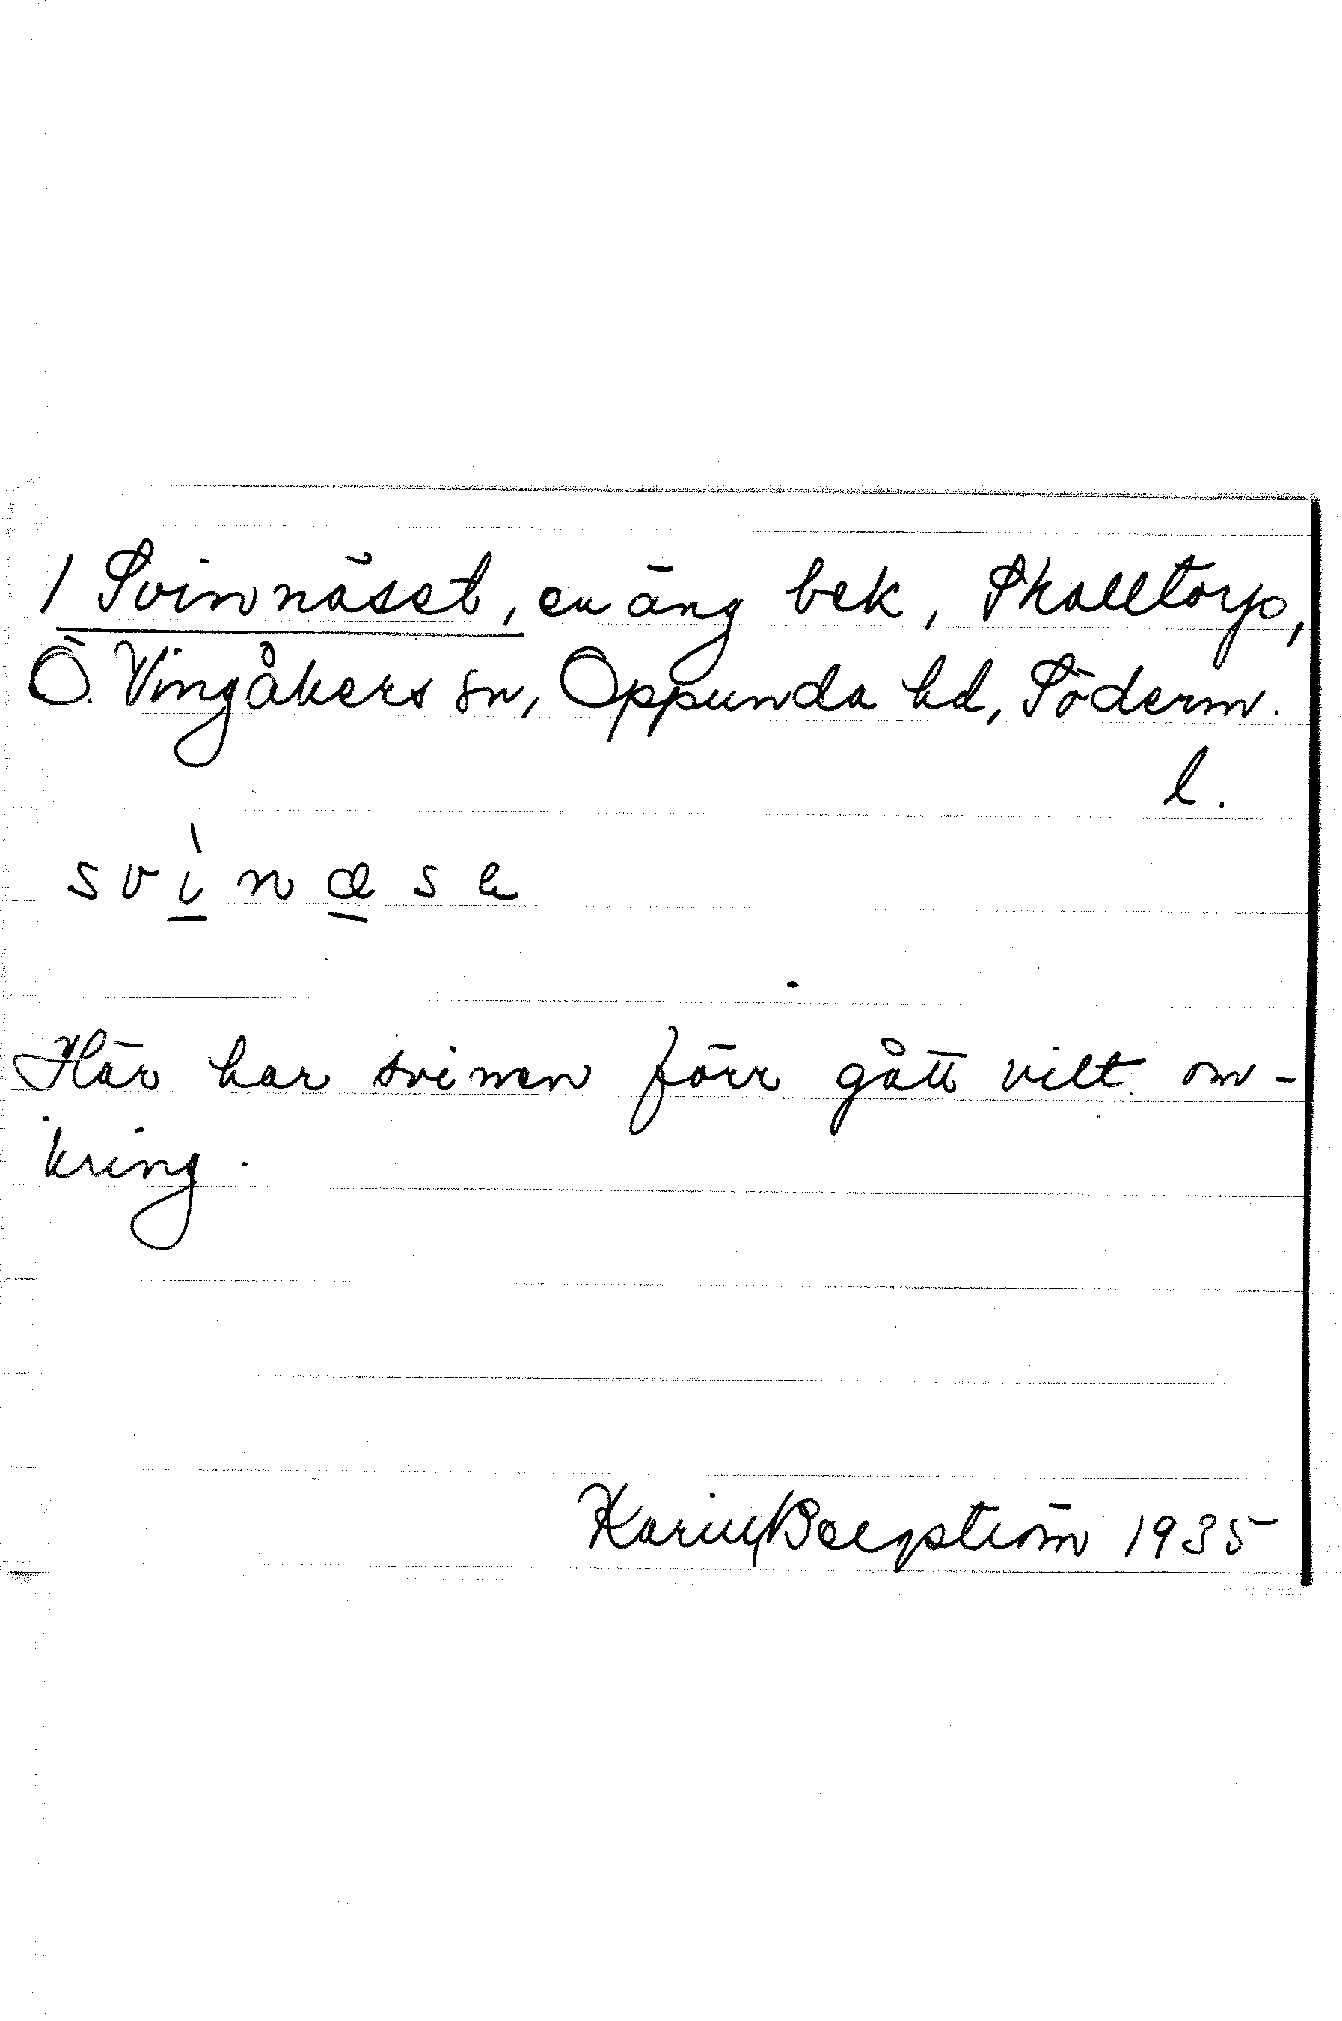 1 Svinnäset, en äng bek, Skalltorp,
Ö. Vingåkers sn, Oppunda hd, Söderm.
l.
svìnæse
Här har svinen förr gått vilt om-
kring.
Karin Bergström 1935